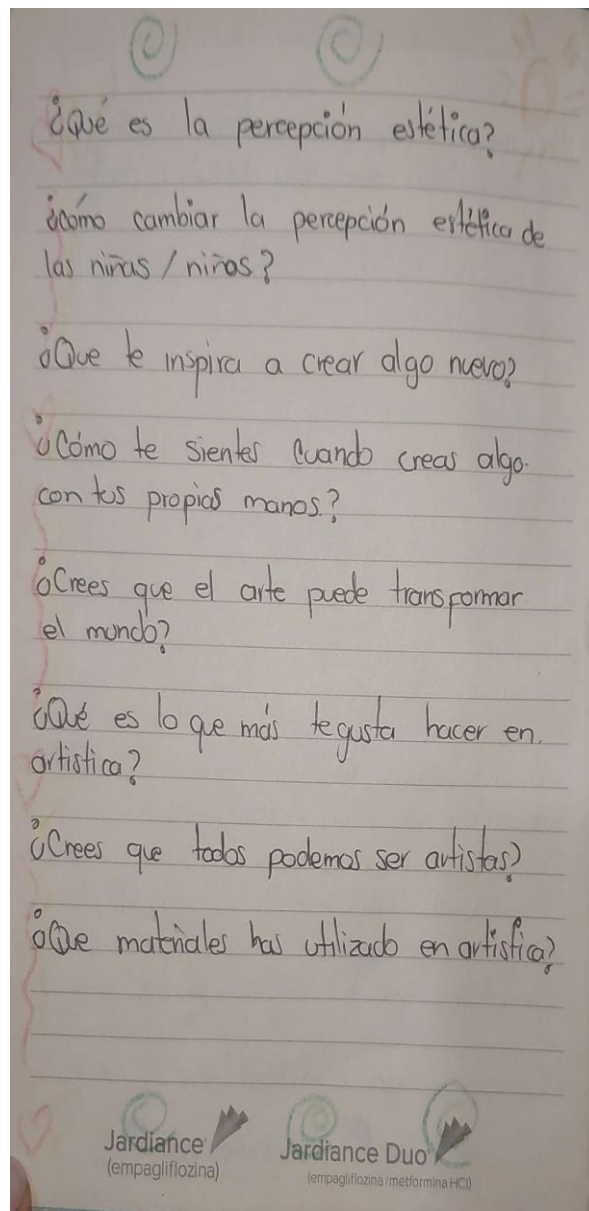 ¿Qué es la percepción estética?
¿cómo cambiar la percepción estética de
las niñas / niños?
¿Que te inspira a crear algo nuevo?
¿Cómo te sientes cuando creas algo.
con tus propias manos.?
¿Crees que el arte puede transformar
el mundo?
¿Qué es lo que más te gusta hacer en.
artistica?
¿Crees que todos podemos ser artistas?
¿Que materiales has utilizado en artistica?
Jardiance Jardiance Duo
(empagliflozina) (empagliflozina/metformina HCl)